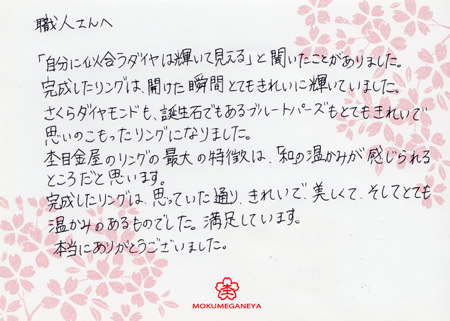 職人さんへ
「自分に似合うダイヤは輝いて見える」と聞いたことがありました。
完成したリングは、開けた瞬間とてもきれいに輝いていました。
さくらダイヤモンドも、誕生石でもあるブルートパーズもとてもきれいで
思いのこもったリングになりました。
杢目金屋のリングの最大の特徴は、「和の温かみが感じられる
ところだと思います。
完成したリングは、思っていた通り、きれいで、美しくて、そしてとても
温かみのあるものでした。満足しています。
本当にありがとうございました。
MOKUMEGANEYA